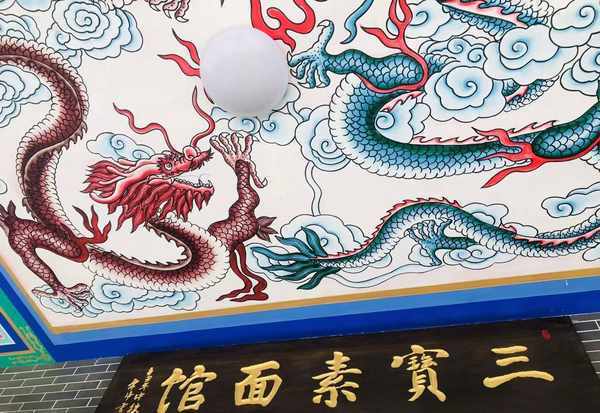 三寶素面館